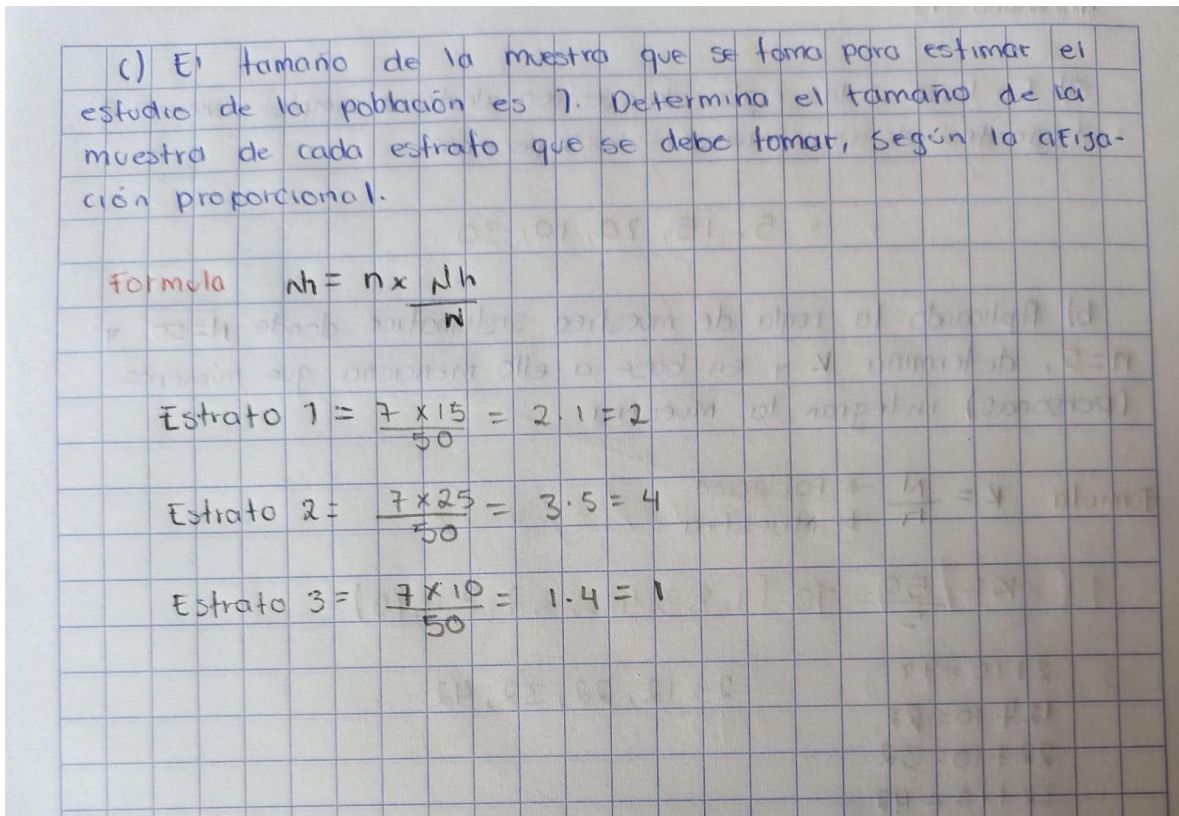 c) El tamaño de la muestra que se toma para estimar el
estudio de la población es 7. Determina el tamaño de la
muestra de cada estrato que se debe tomar, según la afija-
ción proporcional.
Formula nh = n x Nh
N
Estrato 1 = 7 x 15 = 2.1 = 2
50
Estrato 2 = 7 x 25 = 3.5 = 4
50
Estrato 3 = 7 x 10 = 1.4 = 1
50